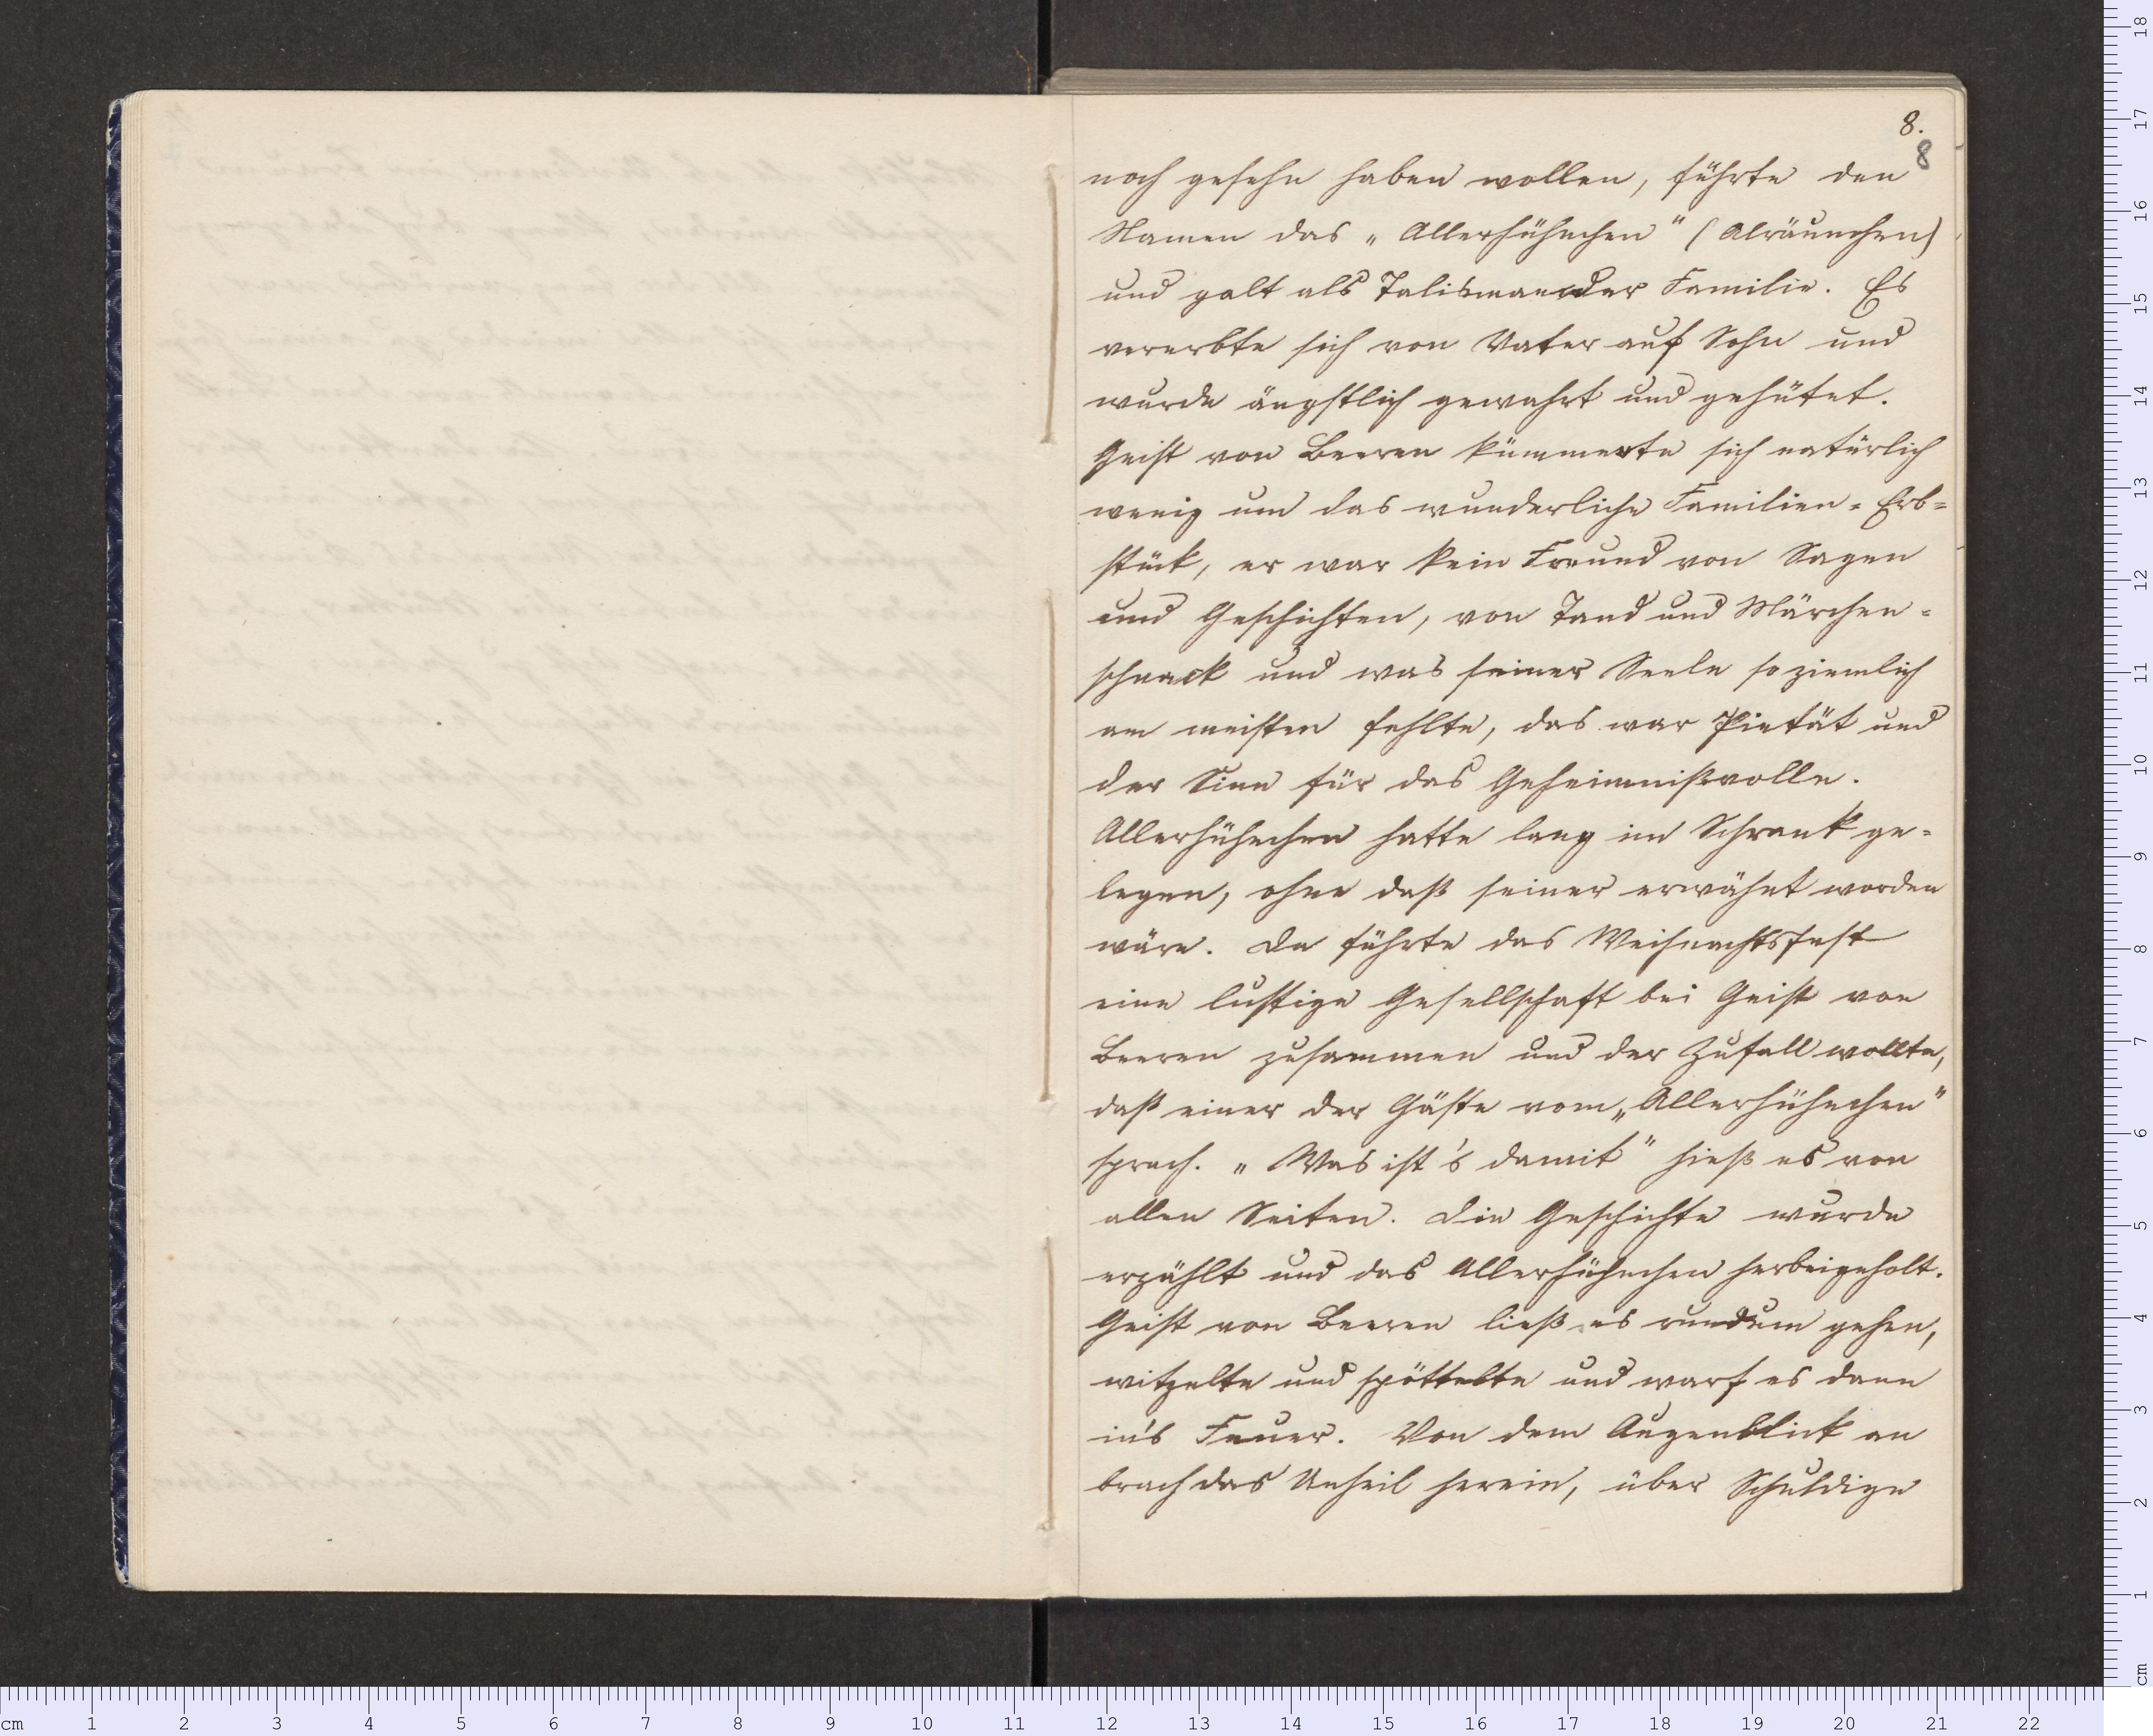 8.
8
noch gesehn haben wollen, führte den
Namen das „Allerhühnchen" (Alräunchen)
und galt als Talisman der Familie. Es
vererbte sich von Vater auf Sohn und
wurde ängstlich gewahrt und gehütet.
Geist von Beeren kümmerte sich natürlich
wenig um das wunderliche Familien-Erb-
stück, er war kein Freund von Sagen
und Geschichten, von Tand und Märchen-
schnack und was seiner Seele so ziemlich
am meisten fehlte, das war Pietät und
der Sinn für das Geheimnißvolle.
Allerhühnchen hatte lang im Schrank ge-
legen, ohne daß seiner erwähnt worden
wäre. Da führte das Weihnachtsfest
eine lustige Gesellschaft bei Geist von
Beeren zusammen und der Zufall wollte,
daß einer der Gäste vom „Allerhühnchen"
sprach. „Was ist's damit" hieß es von
allen Seiten. Die Geschichte wurde
erzählt und das Allerhühnchen herbeigeholt.
Geist von Beeren ließ es rundum gehen,
witzelte und spöttelte und warf es dann
in's Feuer. Von dem Augenblick an
brach das Unheil herein, über Schuldige